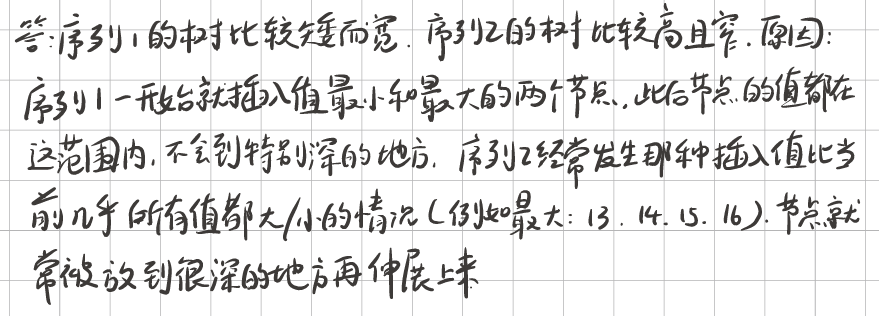 答:序列1的树比较矮而宽. 序列2的树比较高且窄. 原因:
序列1一开始就插入值最小和最大的两个节点, 此后节点的值都在
这范围内, 不会到特别深的地方. 序列2经常发生那种插入值比当
前几乎所有值都大/小的情况(例如最大: 13. 14. 15. 16). 节点就
常被放到很深的地方再伸展上来